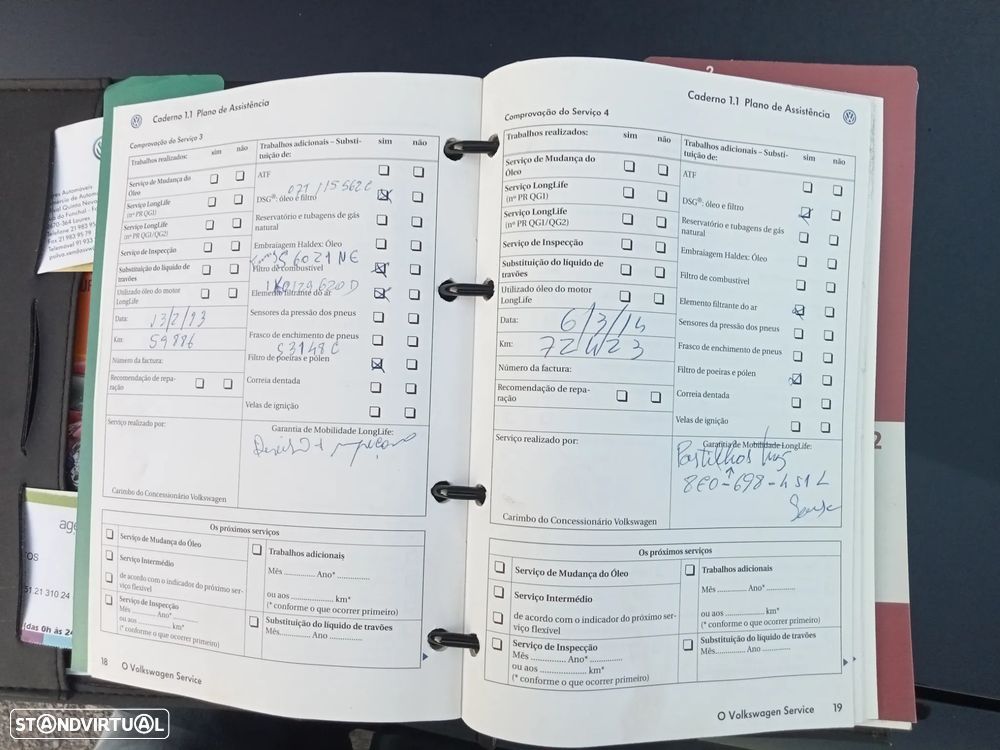 Caderno 1.1 Plano de Assistência
Comprovação do Serviço 3
Trabalhos realizados: sim não
Serviço de Mudança do
Óleo
Serviço LongLife
(nº PR QG1)
Serviço LongLife
(nº PR QG1/QG2)
Serviço de Inspecção
Substituição do líquido de
travões
Utilizado óleo do motor
LongLife
Data: 13/2/13
Km: 59886
Número da factura:
Recomendação de repa-
ração
Trabalhos adicionais – Substi- sim não
tuição de:
ATF
071/15562C
DSG®: óleo e filtro
Reservatório e tubagens de gás
natural
Embraiagem Haldex: Óleo
6021NE
Filtro de combustível
1K0129620D
Elemento filtrante do ar
Sensores da pressão dos pneus
Frasco de enchimento de pneus
S3148C
Filtro de poeiras e pólen
Correia dentada
Velas de ignição
Serviço realizado por:
Garantia de Mobilidade LongLife:
Carimbo do Concessionário Volkswagen
Os próximos serviços
Serviço de Mudança do Óleo
Serviço Intermédio
de acordo com o indicador do próximo ser-
viço flexível
Serviço de Inspecção
Mês ............ Ano* ............
ou aos .................... km*
(* conforme o que ocorrer primeiro)
Trabalhos adicionais
Mês .............. Ano* ..............
ou aos .................... km*
(* conforme o que ocorrer primeiro)
Substituição do líquido de travões
Mês............. Ano .............
18 O Volkswagen Service
2
Caderno 1.1 Plano de Assistência
Comprovação do Serviço 4
Trabalhos realizados: sim não
Serviço de Mudança do
Óleo
Serviço LongLife
(nº PR QG1)
Serviço LongLife
(nº PR QG1/QG2)
Serviço de Inspecção
Substituição do líquido de
travões
Utilizado óleo do motor
LongLife
Data: 6/3/14
Km: 72423
Número da factura:
Recomendação de repa-
ração
Trabalhos adicionais – Substi- sim não
tuição de:
ATF
DSG®: óleo e filtro
Reservatório e tubagens de gás
natural
Embraiagem Haldex: Óleo
Filtro de combustível
Elemento filtrante do ar
Sensores da pressão dos pneus
Frasco de enchimento de pneus
Filtro de poeiras e pólen
Correia dentada
Velas de ignição
Serviço realizado por:
Garantia de Mobilidade LongLife:
Pastilhas
8E0-698-451L
Carimbo do Concessionário Volkswagen
Os próximos serviços
Serviço de Mudança do Óleo
Serviço Intermédio
de acordo com o indicador do próximo ser-
viço flexível
Serviço de Inspecção
Mês .............. Ano* ..............
ou aos .................... km*
(* conforme o que ocorrer primeiro)
Trabalhos adicionais
Mês .............. Ano* ..............
ou aos .................... km*
(* conforme o que ocorrer primeiro)
Substituição do líquido de travões
Mês............. Ano .............
O Volkswagen Service 19
2
Automóveis
Telefone 21 983 95
Fax 21 983 95 79
Telemóvel 91 933
51 21 310 24
(das 0h às 24
STANDVIRTUAL